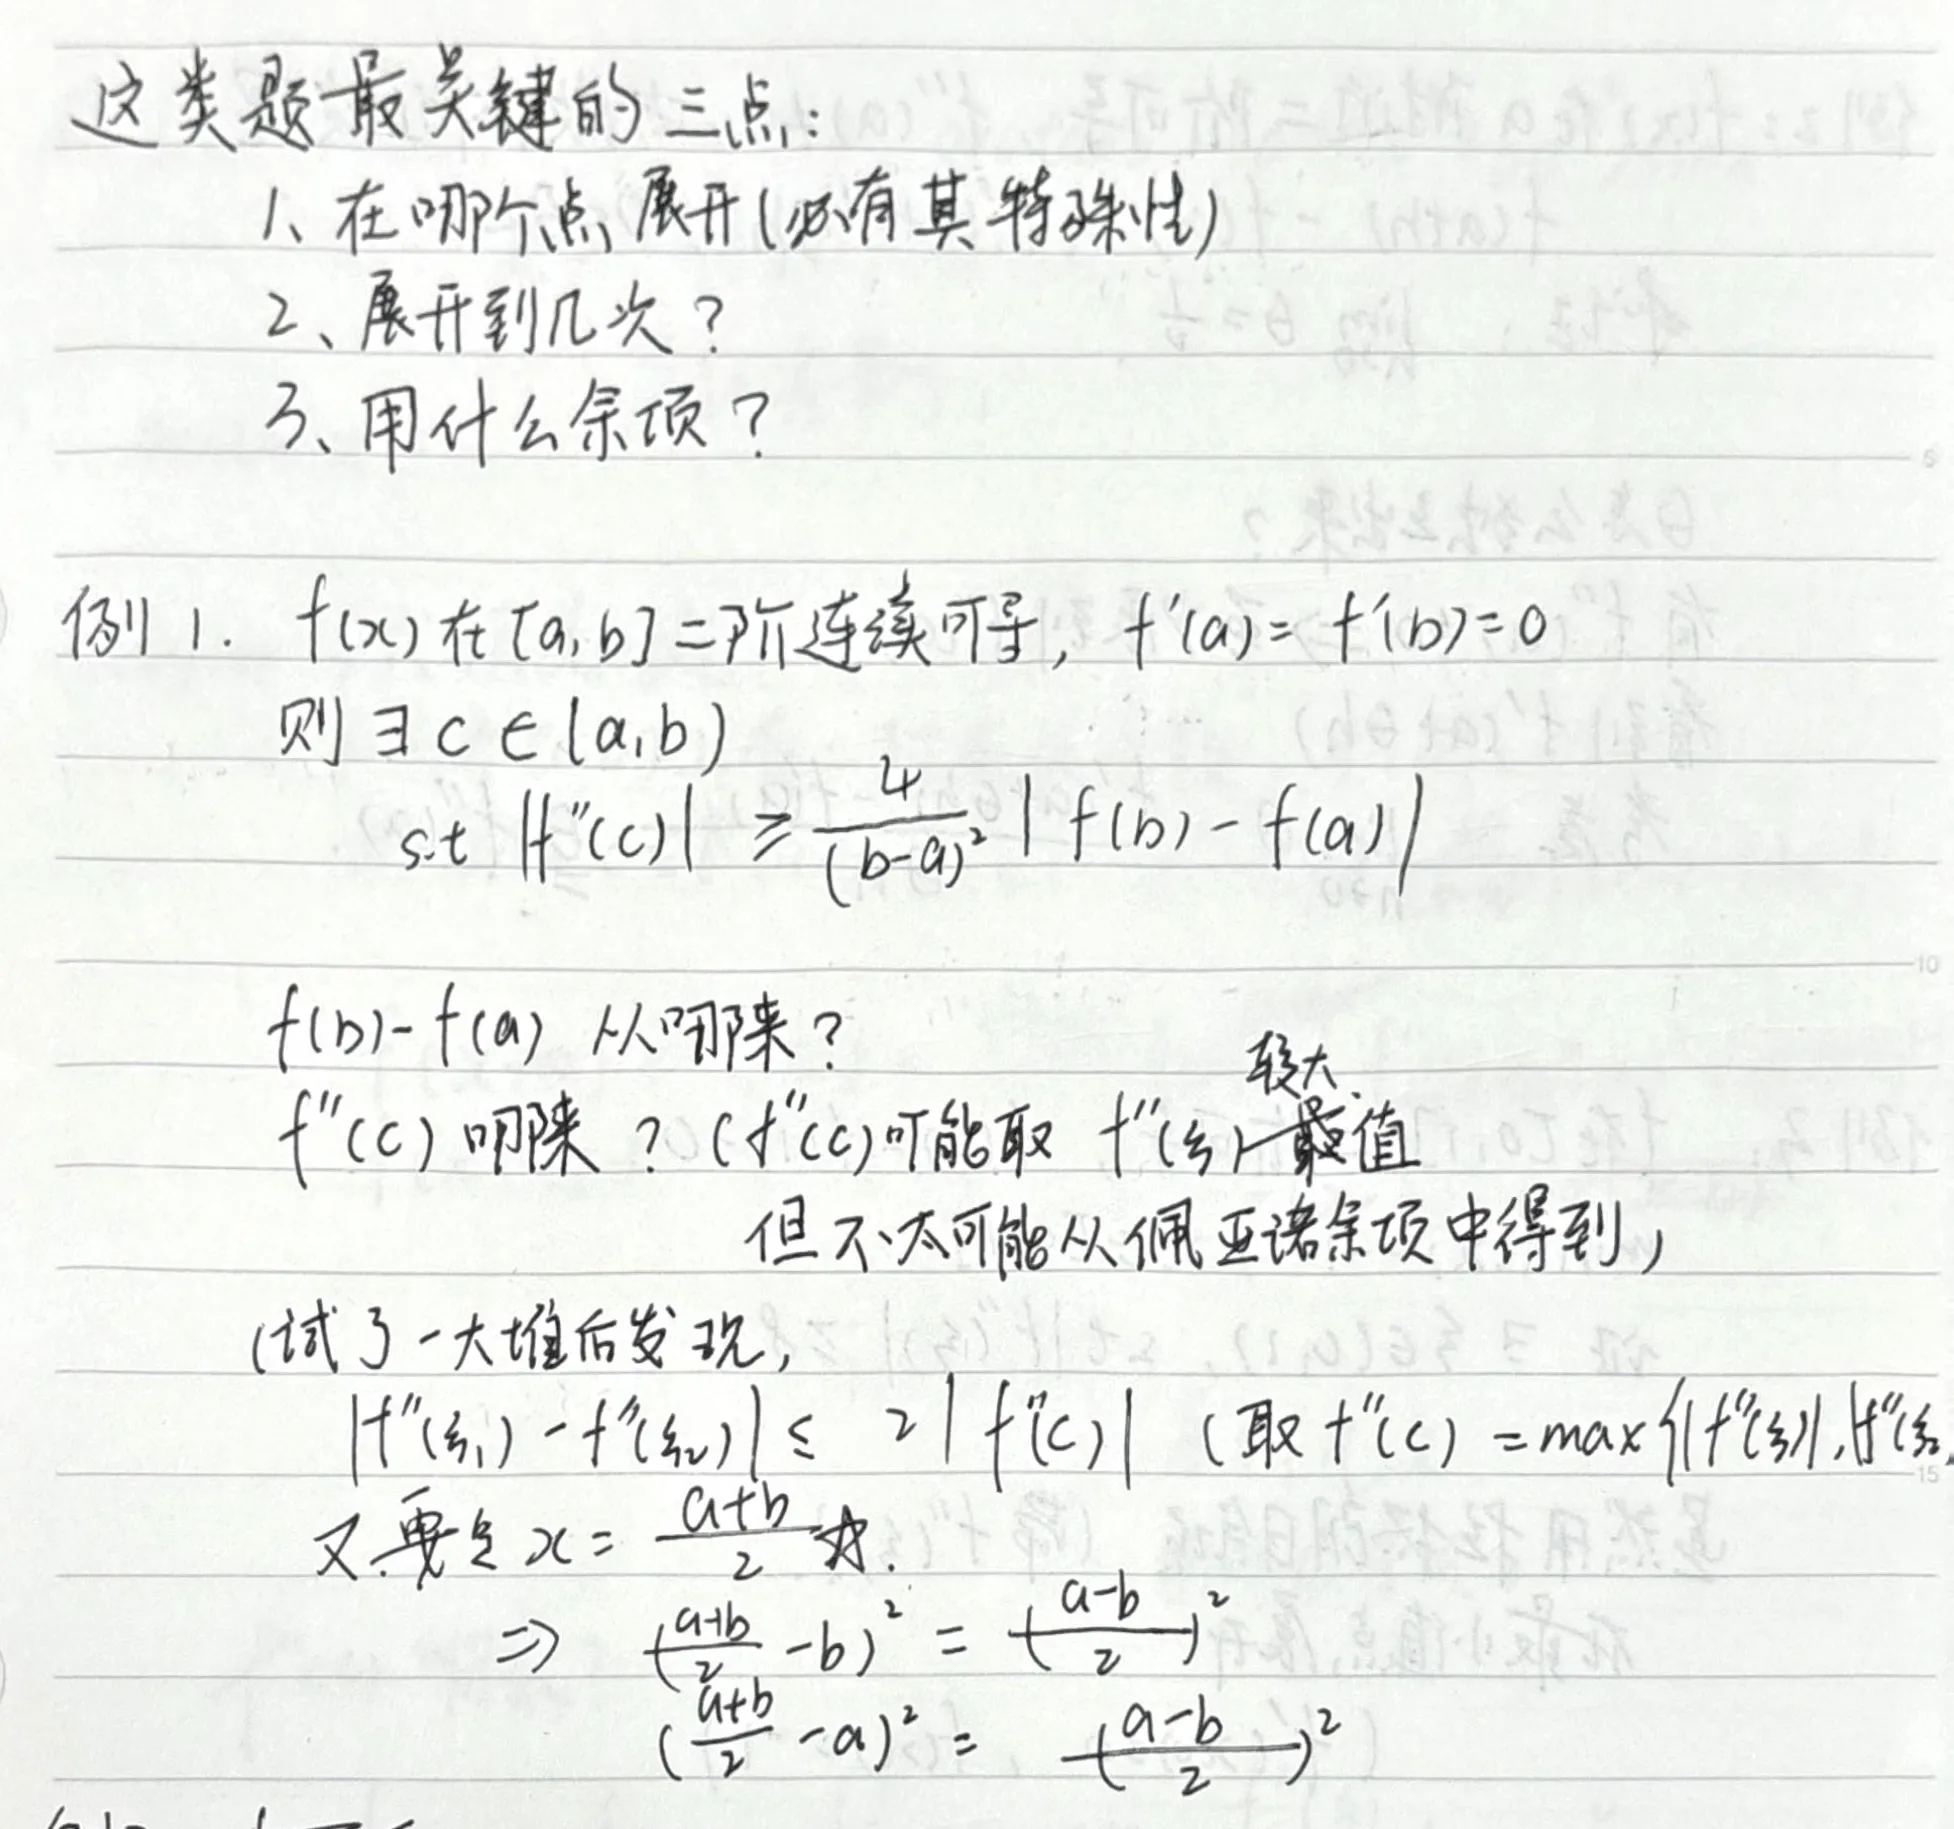 这类题最关键的三点:
1、在哪个点展开(必有其特殊性)
2、展开到几次?
3、用什么余项?
例1. f(x)在[a,b]二阶连续可导, f'(a)=f'(b)=0
则∃c∈(a,b)
s.t |f''(c)| ≥ 4/(b-a)² |f(b)-f(a)|
f(b)-f(a) 从哪来?
f''(c)哪来?(f''(c)可能取 f''(ξ)较大值
但不太可能从佩亚诺余项中得到,
(试了一大堆后发现,
|f''(ξ₁)-f''(ξ₂)| ≤ 2|f''(c)| (取f''(c)=max{|f''(ξ)|,|f''(ξ₂
又要 x=(a+b)/2
⇒ ((a+b)/2-b)² = ((a-b)/2)²
((a+b)/2-a)² = ((a-b)/2)²